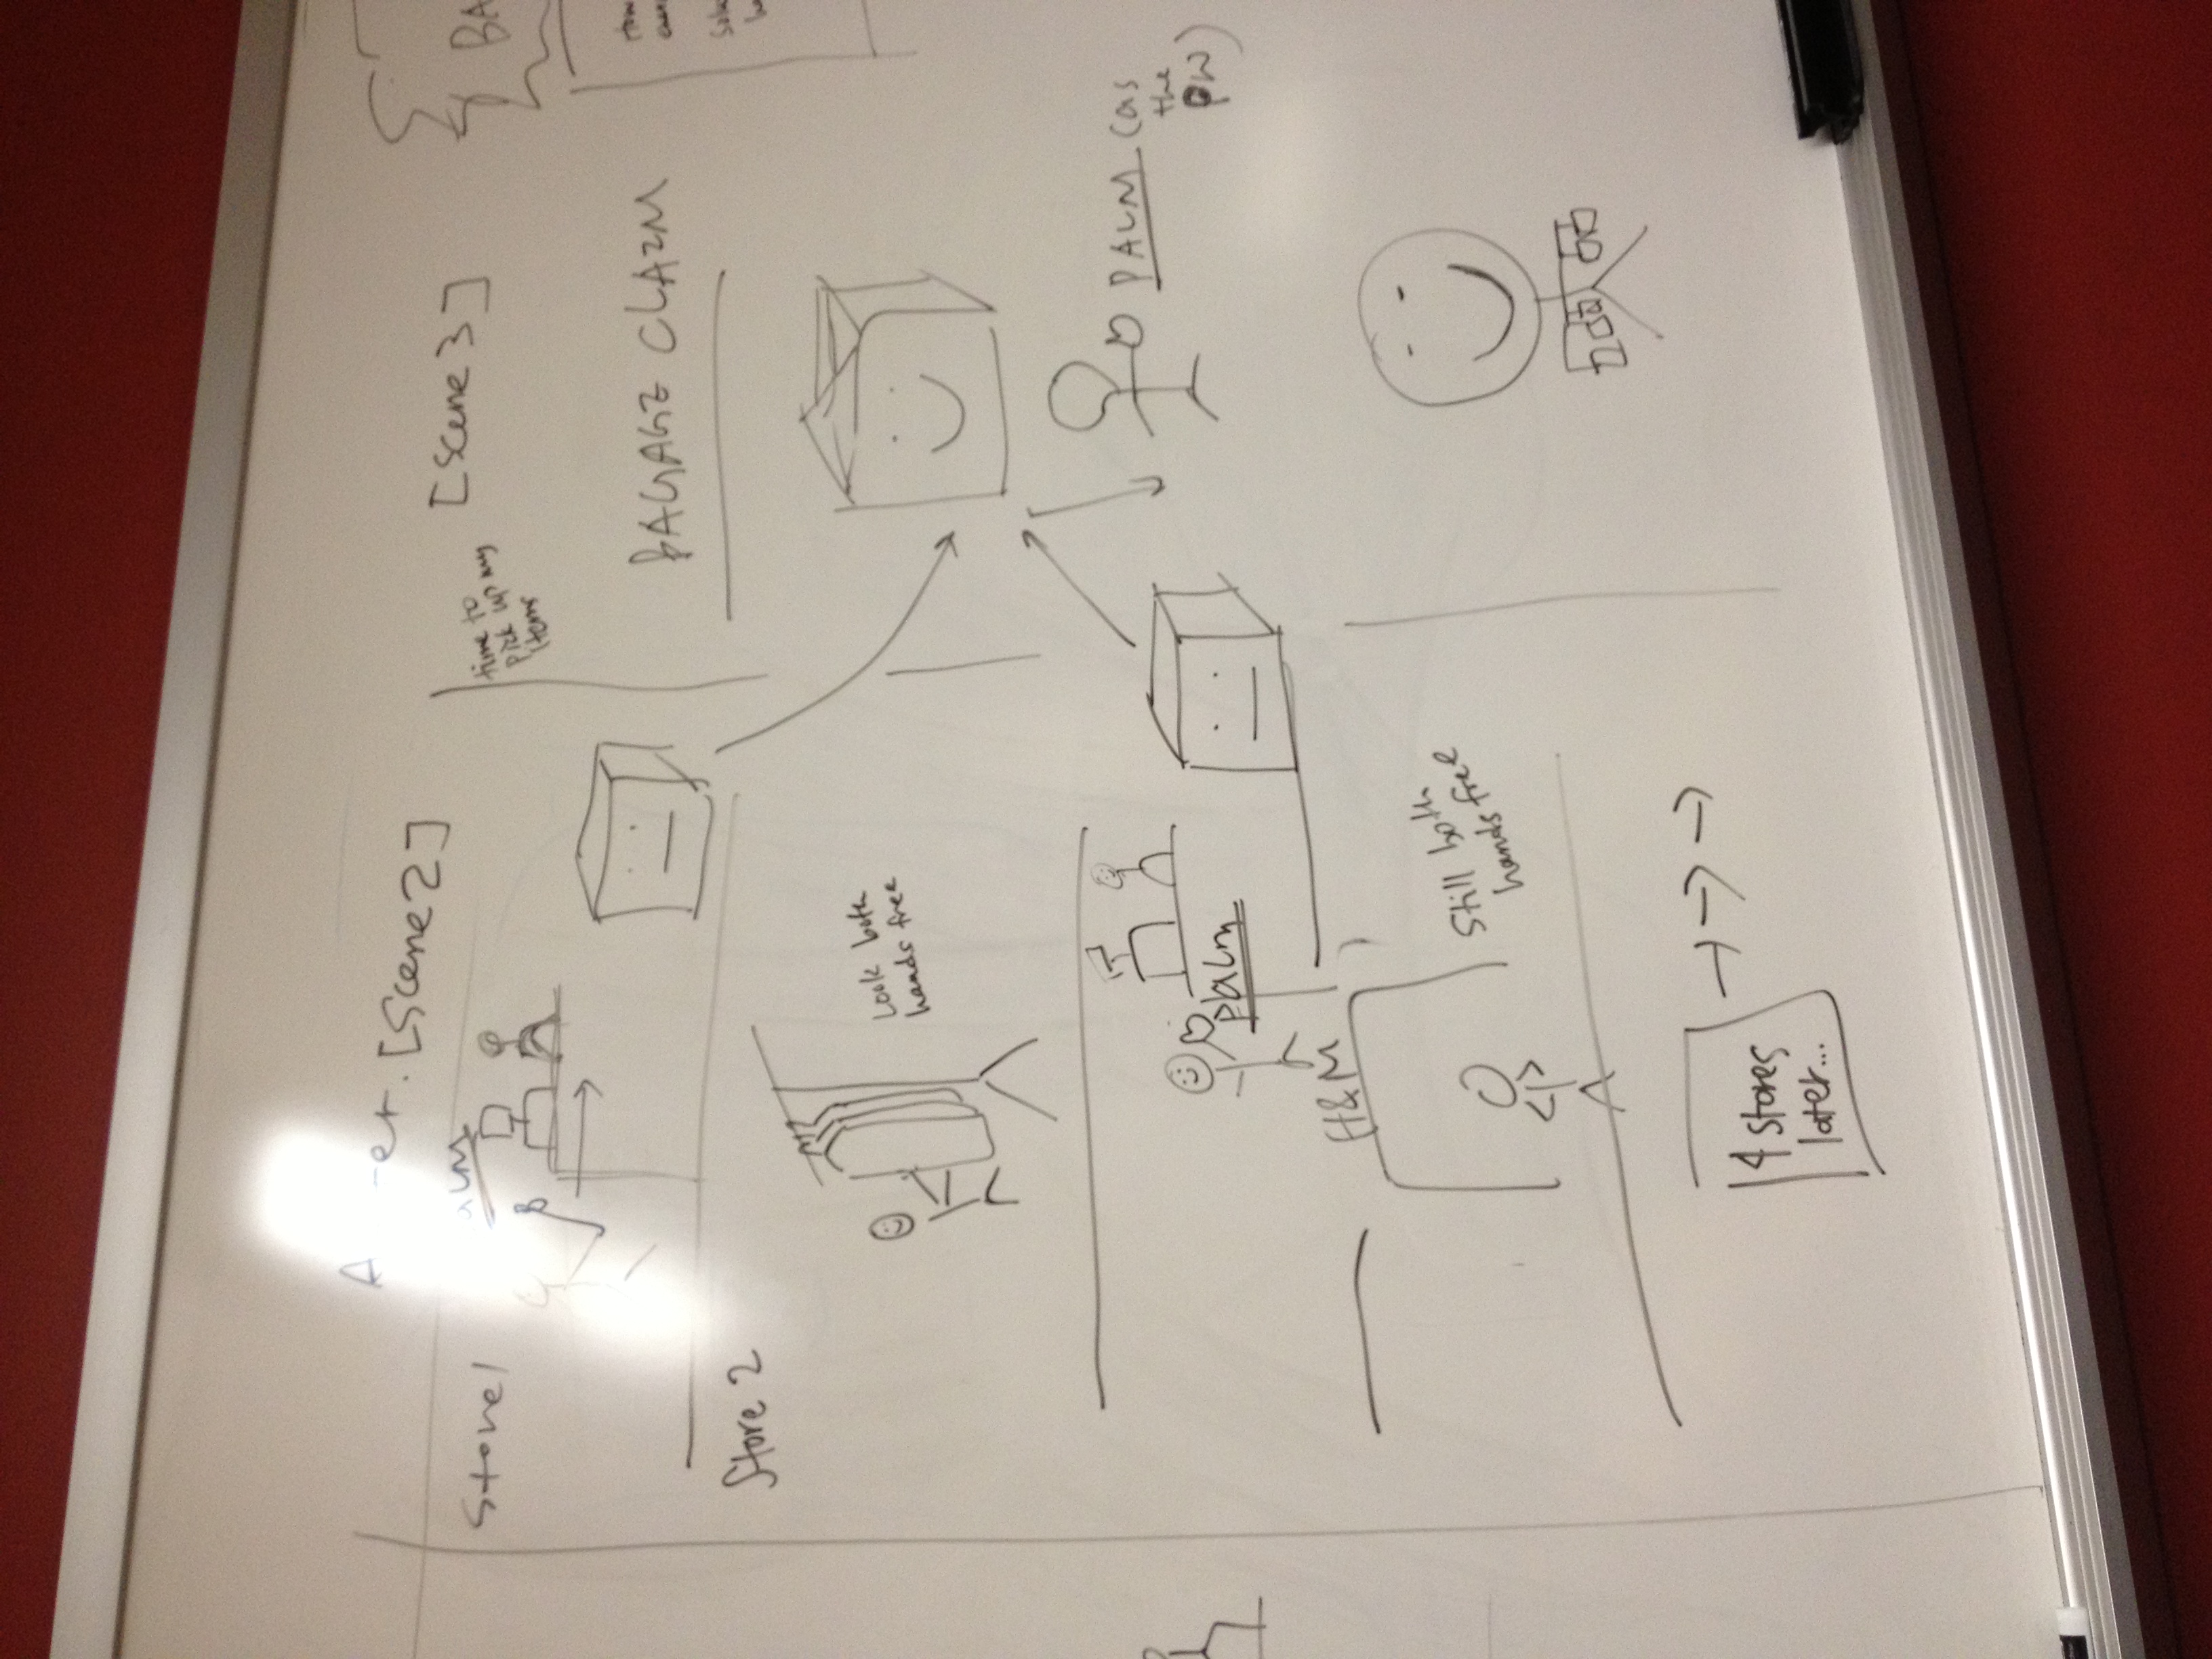 [Scene 2]
Store 1
Store 2
Look both
hands free
palm
H&M
Still both
hands free
4 stores
later...
[Scene 3]
time to
pick up my
items
BAGAGE CLAIM
PALM (as
the
PW)
BA